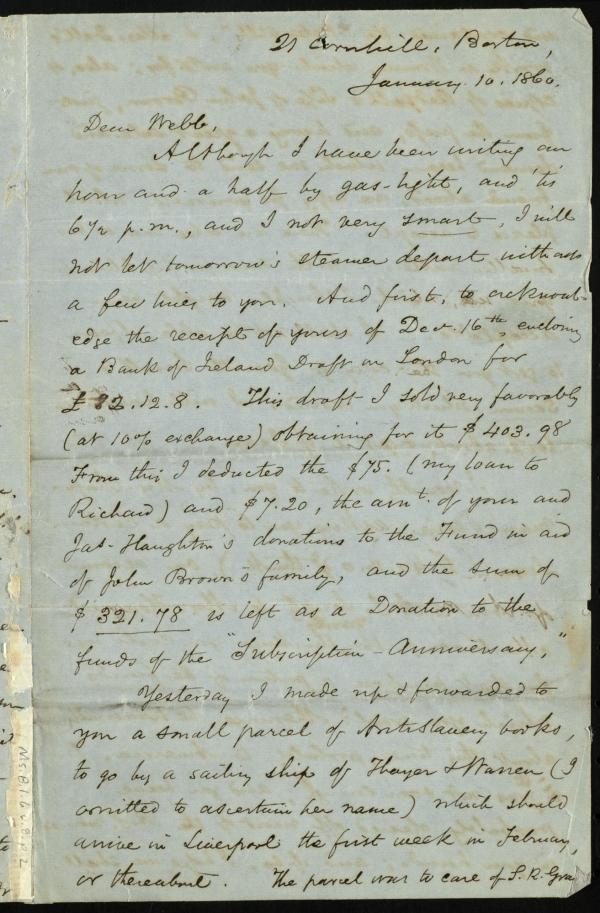 21 Cornhill, Boston,
January 10. 1860.
Dear Webb,
Although I have been writing an
hour and a half by gas-light, and 'tis
6 1/2 p.m., and I not very smart, I will
not let tomorrow's steamer depart without
a few lines to you. And first, to acknowl-
edge the receipt of yours of Dec. 16th, enclosing
a Bank of Ireland Draft on London for
£82.12.8. This draft I sold very favorably
(at 10% exchange) obtaining for it $403.98
From this I deducted the $75. (my loan to
Richard) and $7.20, the amt. of your and
Jas. Haughton's donations to the Fund in aid
of John Brown's family, and the sum of
$321.78 is left as a Donation to the
funds of the "Subscription-Anniversary,"
Yesterday I made up & forwarded to
you a small parcel of AntiSlavery books,
to go by a sailing ship of Thayer & Warren (I
omitted to ascertain her name) which should
arrive in Liverpool the first week in February,
or thereabout. The parcel was to care of S. R. Gra